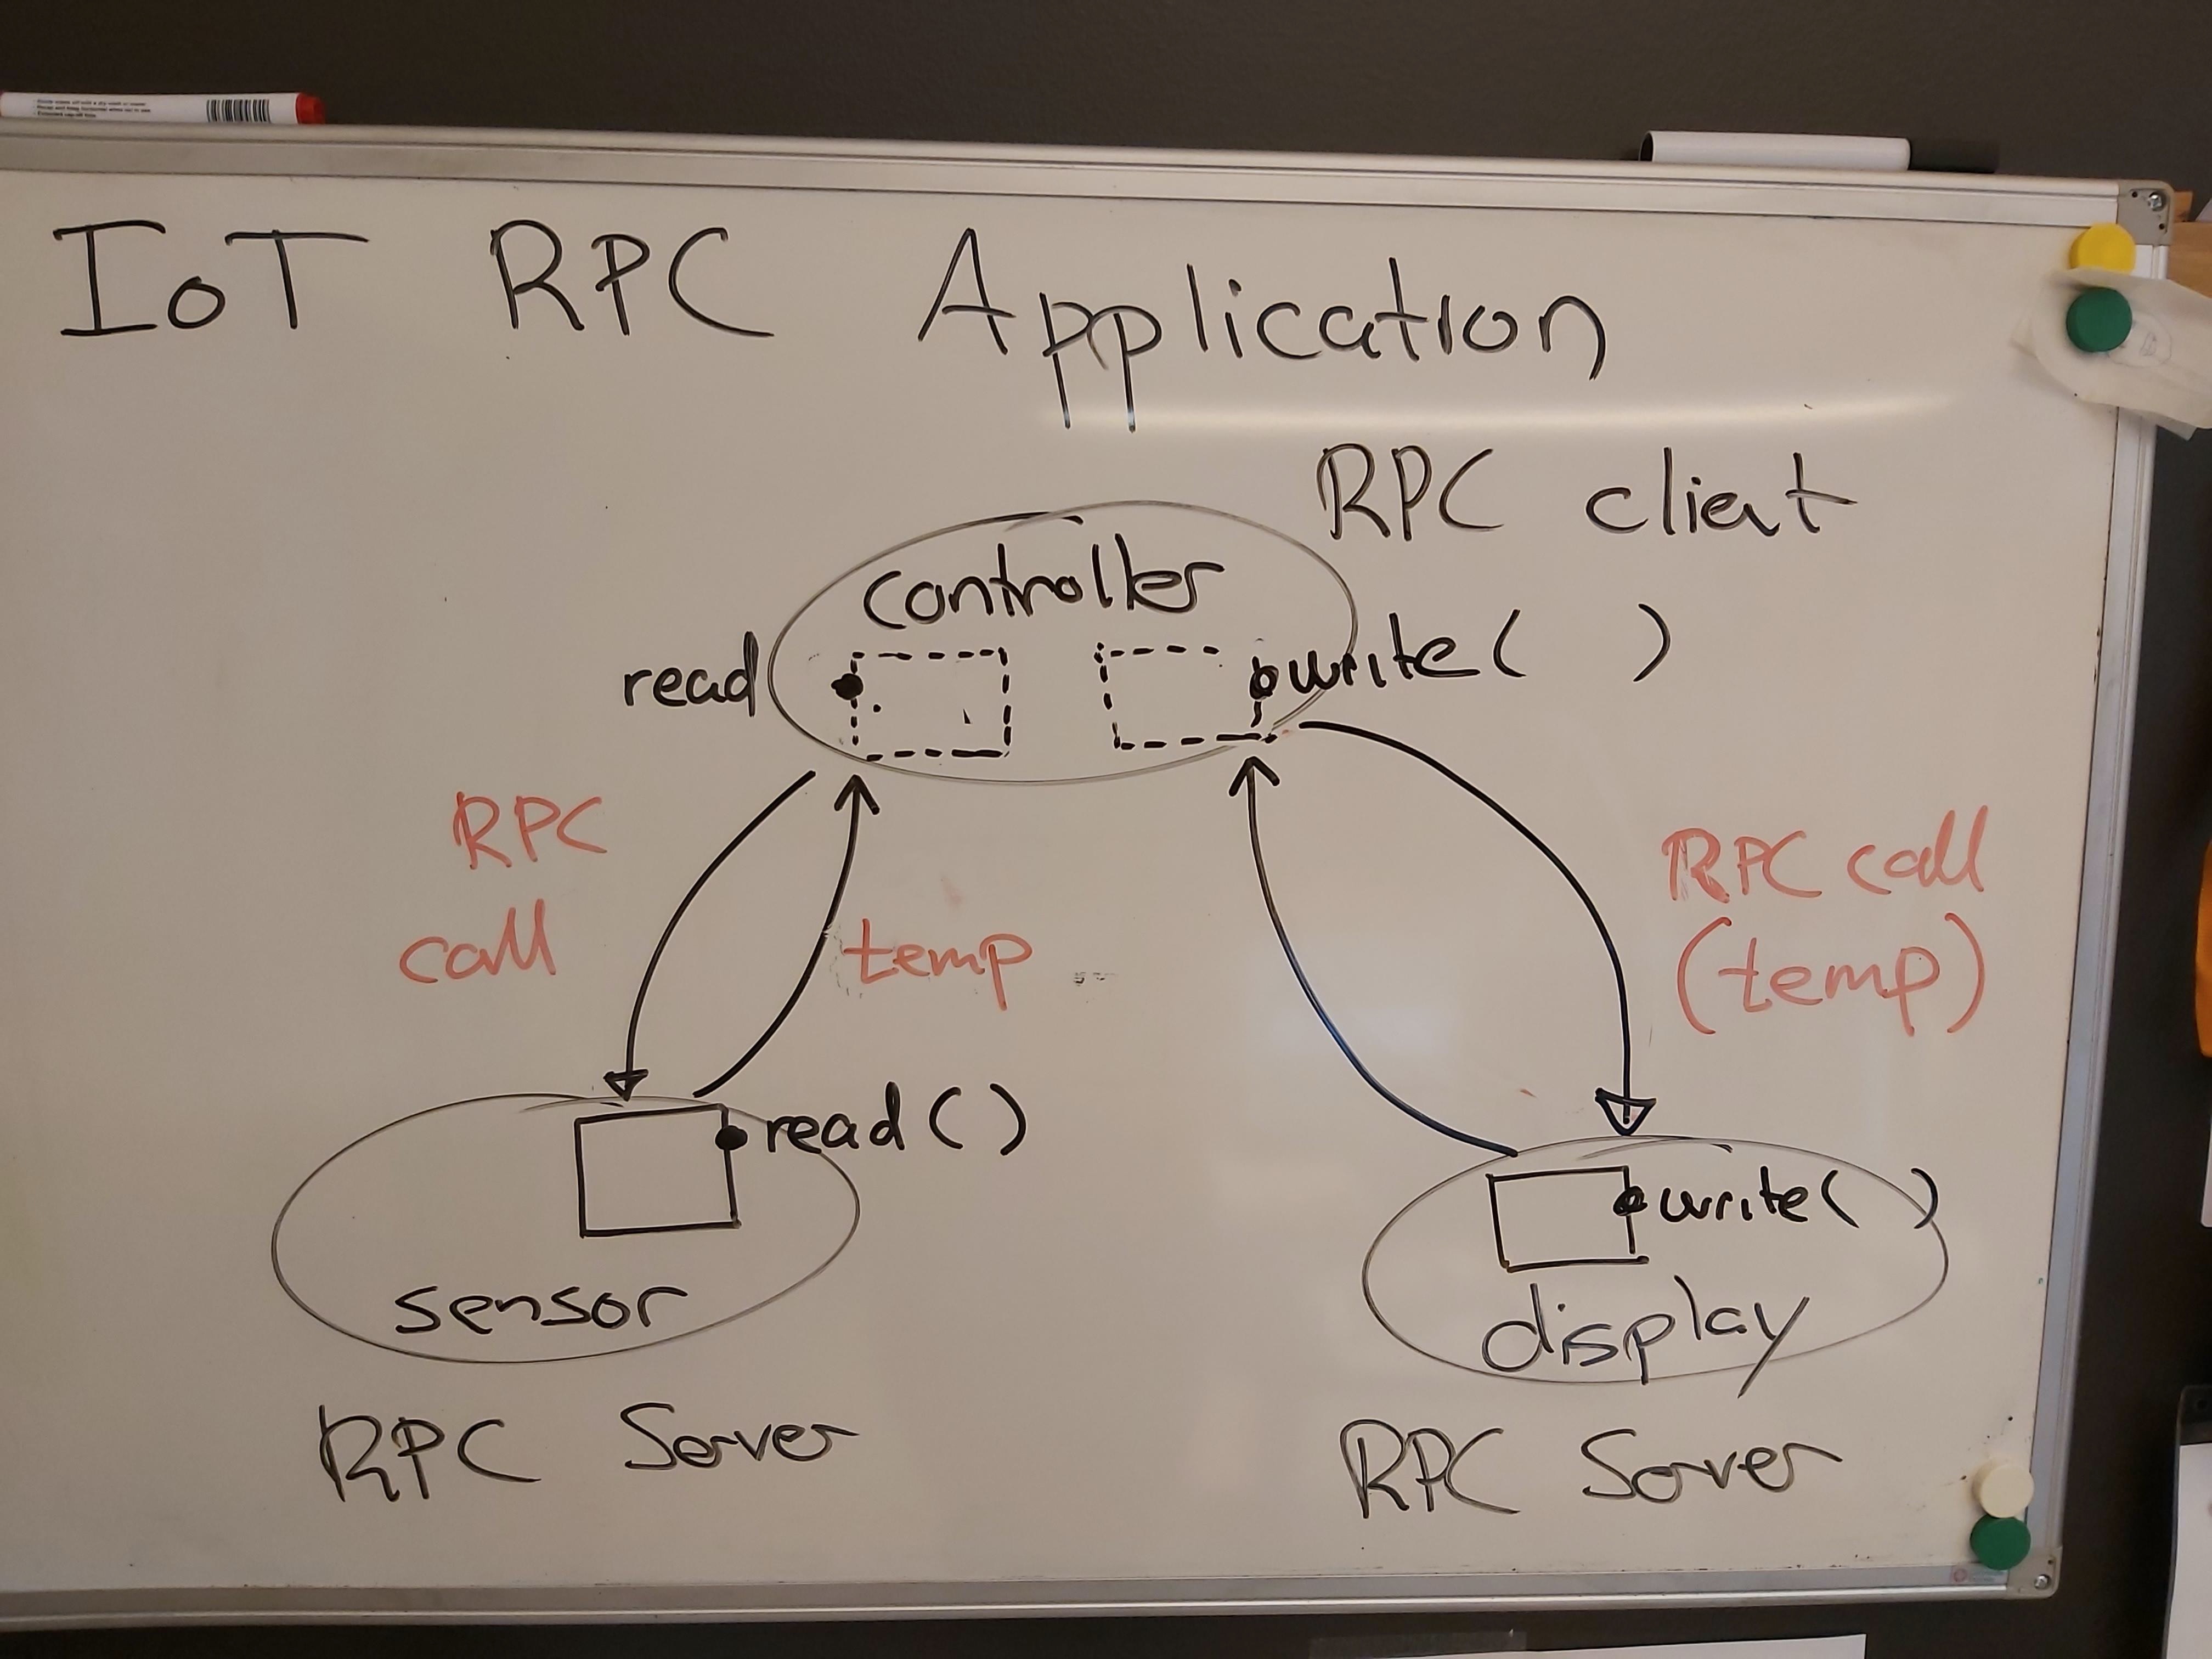 IoT RPC Application
RPC client
controller
read
write( )
RPC
call
temp
RPC call
(temp)
read()
write( )
sensor
display
RPC Server
RPC Server